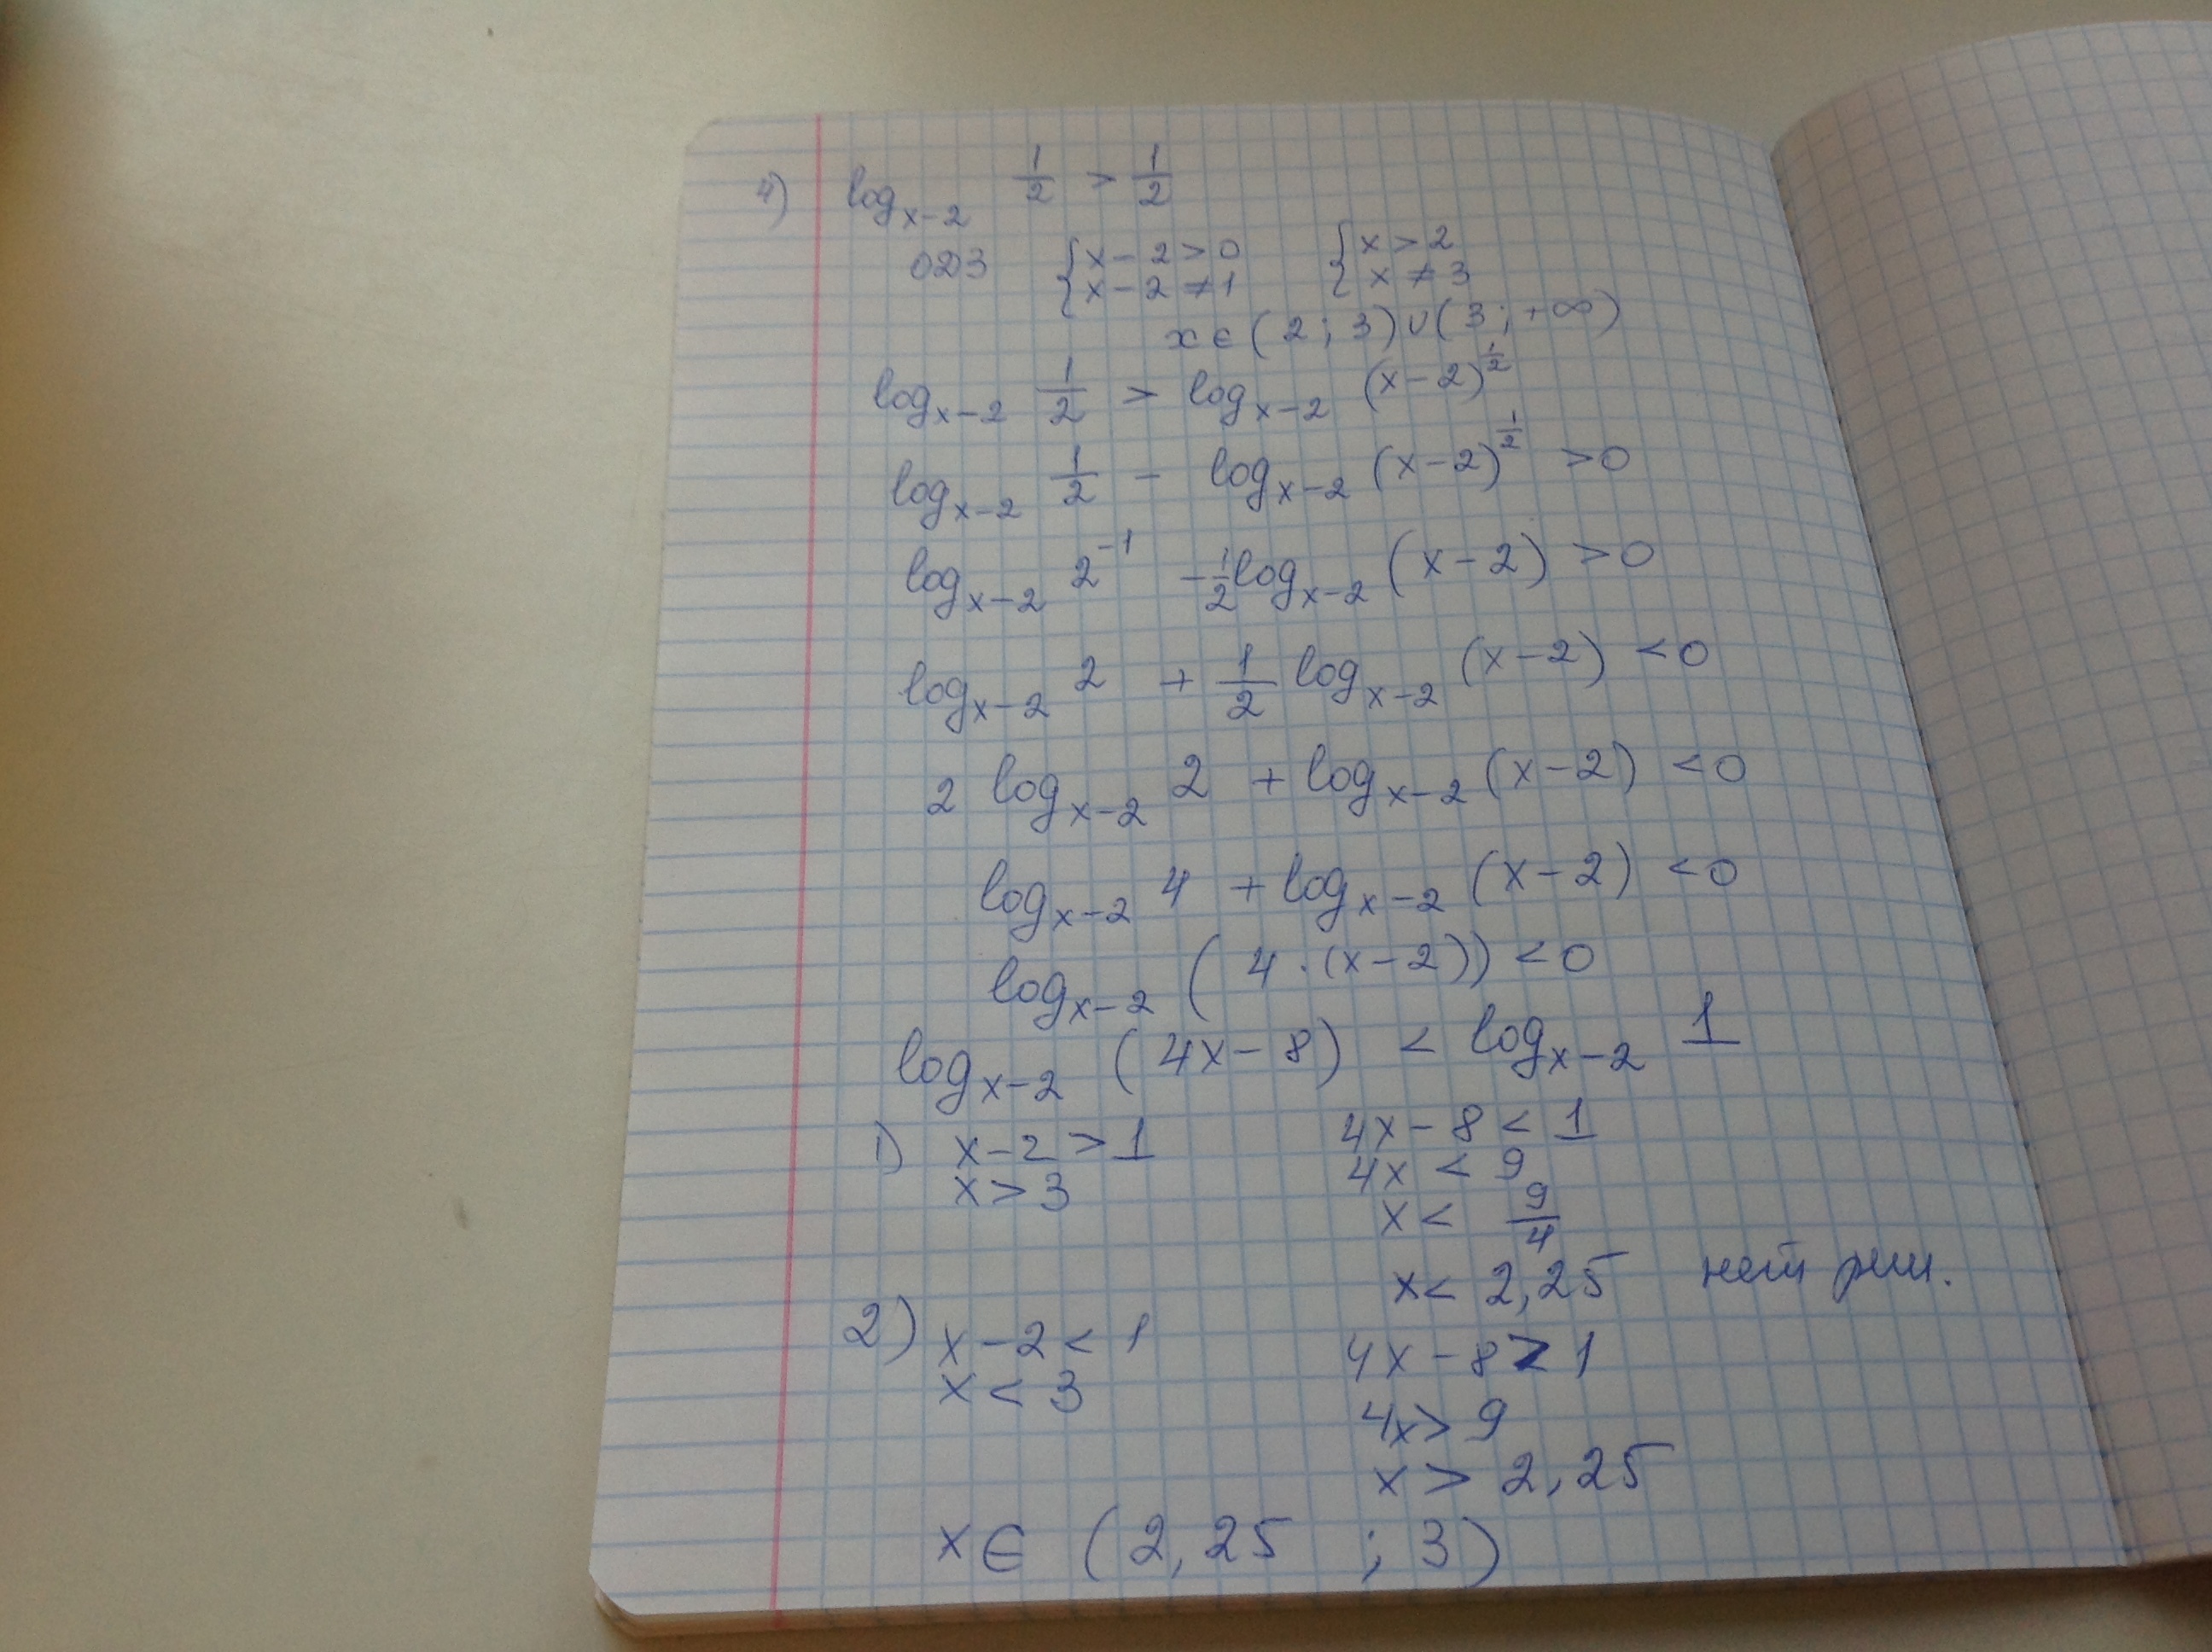 4) log_{x-2} 1/2 > 1/2
ОДЗ { x-2>0 { x>2
{ x-2≠1 { x≠3
x∈(2;3)∪(3;+∞)
log_{x-2} 1/2 > log_{x-2} (x-2)^{1/2}
log_{x-2} 1/2 - log_{x-2} (x-2)^{1/2} >0
log_{x-2} 2^{-1} -1/2 log_{x-2} (x-2) >0
log_{x-2} 2 + 1/2 log_{x-2} (x-2) <0
2 log_{x-2} 2 + log_{x-2} (x-2) <0
log_{x-2} 4 + log_{x-2} (x-2) <0
log_{x-2} (4·(x-2)) <0
log_{x-2} (4x-8) < log_{x-2} 1
1) x-2>1 4x-8<1
x>3 4x<9
x< 9/4
x< 2,25 нет реш.
2) x-2<1 4x-8>1
x<3 4x>9
x > 2,25
x∈ (2,25 ; 3)